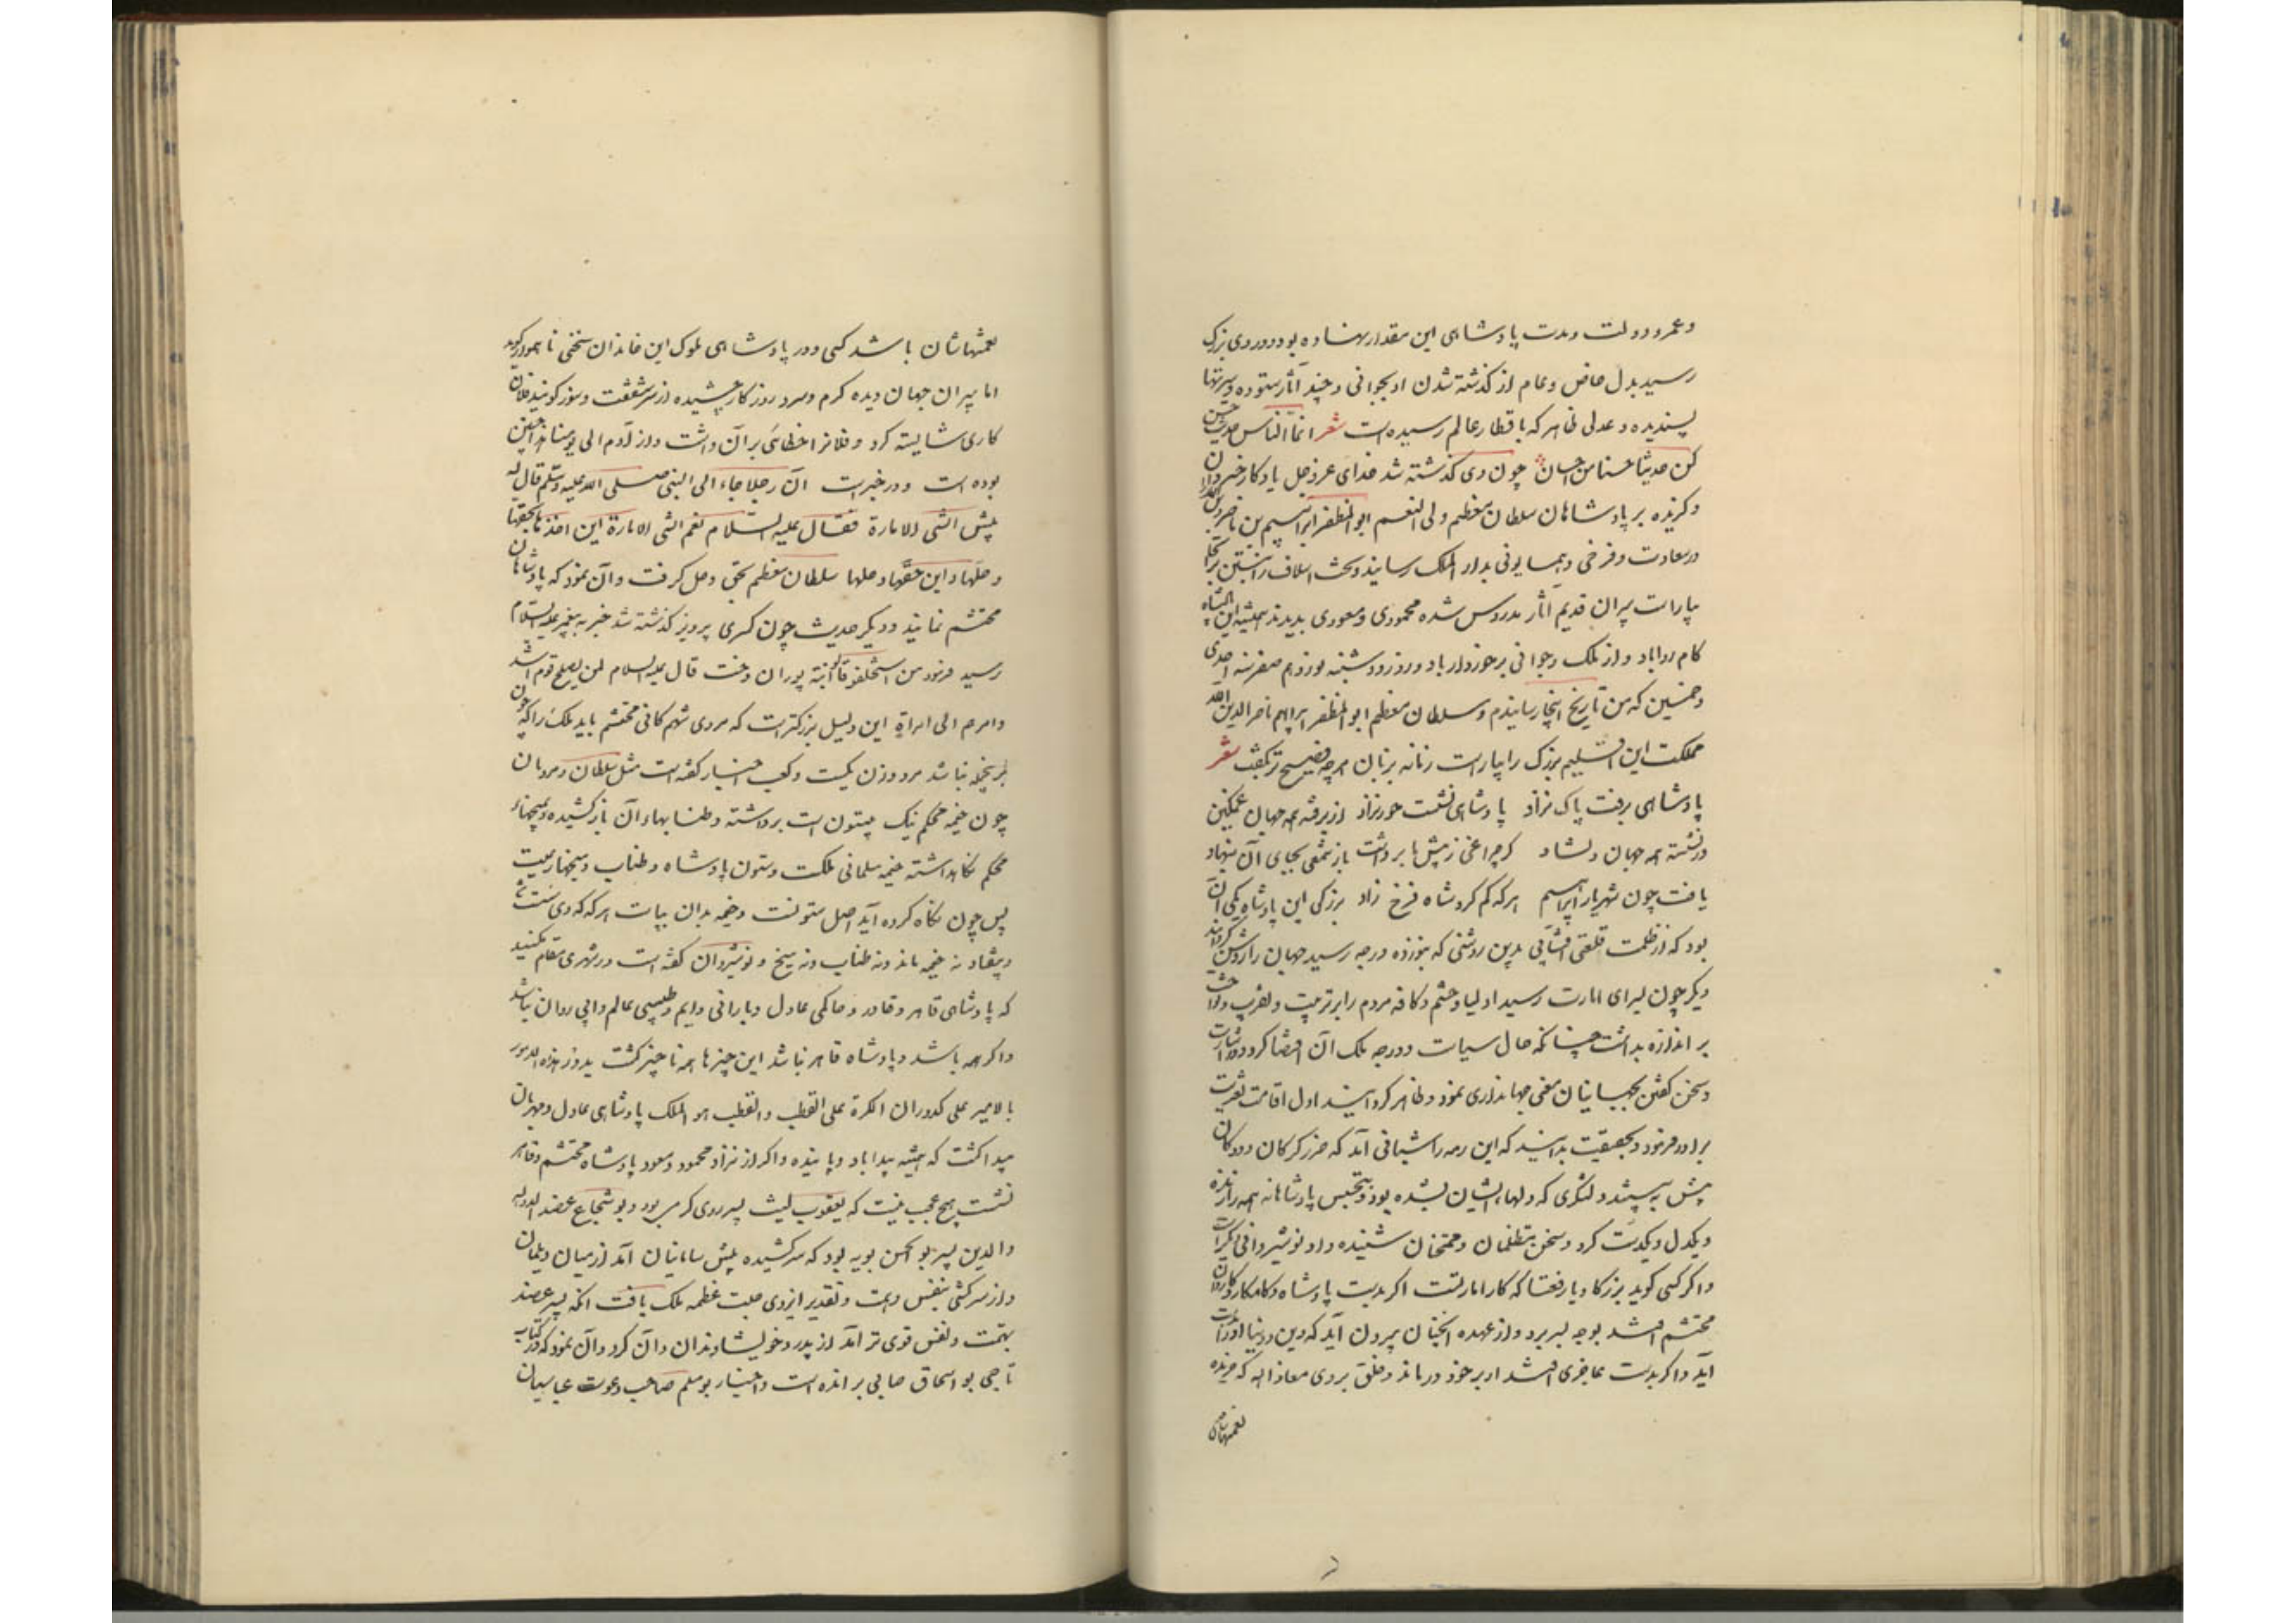 وعمر و دولت و مدت پادشاهی این مقدار نهاده بود و دردی بزرگ
رسید بدل خاص و عام از گذشته شدن او بجوانی و چندین آثار ستوده و سیرتها
پسندیده و عدلی ظاهر که باقطار عالم رسیده است شعر انما الناس حدیث حسن
کن حدیثا حسنا من حسان چون وی گذشته شد خدای عز و جل یادگار خسروان
و گزیده بر پادشاهان سلطان معظم ولی النعم ابو المظفر ابراهیم بن ناصر دین الله را
در سعادت و فرخی و همایونی بدار الملک رسانید و تخت اسلاف را نشستن بر آنجا
بیاراست پیران قدیم آثار مدروس شده محمودی و مسعودی بدیدند همیشه این پادشاه
کام روا باد و از ملک و جوانی برخوردار باد و روز دوشنبه نوزدهم صفر سنه احدی
و خمسین که من تاریخ اینجا رسانیدم و سلطان معظم ابو المظفر ابراهیم ناصر الدین الله
مملکت این اقلیم بزرگ را بیاراست زمانه بزبان هرچه فصیح تر بگفت شعر
پادشاهی برفت پاک نژاد پادشاهی نشست حور نژاد از برفته همه جهان غمگین
وز نشسته همه جهان دلشاد گر چراغی ز پیش ما برداشت باز شمعی بجای آن بنهاد
یافت چون شهریار ابراهیم هر که گم کرد شاه فرخ زاد بزرگی این پادشاه یکی آن
بود که از ظلمت قلعتی آفتابی بدین روشنی که بنوزده درجه رسید جهان را روشن گردانید
دیگر چون بسرای امارت رسید اولیا و حشم و کافه مردم را بر ترتیب و تقریب و نواخت
بر اندازه بداشت چنانکه حال سیاست و درجه ملک آن اقتضا کرد و در اشارات
و سخن گفتن بجهانیان معنی جهانداری نمود و ظاهر گردانید اول اقامت تعزیت
برادر فرمود و بحقیقت بدانید که این رمه را شبانی آمد که ضرر گرگان و ددگان
بیش نه بینند و لشکری که دلهاء ایشان بشده بود و بتجنیس پادشاهانه همه را زنده
و یکدل و یکدست کرد و سخن متظلمان و ممتحنان شنیده و داد نوشیروانی دیگر است
و اگر کسی گوید بزرگا و با رفعتا که کار امارتست اگر بدست پادشاه و کامکار و کاردان
محتشم افتد بوجه بسر برد و از عهده آنچنان بیرون آید که دین و دنیا او را بدست
آید و اگر بدست عاجزی افتد او بر خود درماند و خلق بر وی معاذ الله که خریده
نعمتهاشان
نعمتهاشان باشد کسی و در پادشاهی ملوک این خاندان سخنی ناهموار گوید
اما پیران جهان دیده گرم و سرد روزگار چشیده از سر شفقت و سوز گویند فلان
کاری شایسته کرد و فلانرا خطائی بر آن داشت و از آدم الی یومنا هذا چنین
بوده است و در خبرست ان رجلا جاء الی النبی صلی الله علیه و سلم قال له
بئس الشی الامارة فقال علیه السلام نعم الشی الامارة این اخذها بحقها
و حلها و این حقها و حلها سلطان معظم بحق و حل گرفت و آن نمود که پادشاهان
محتشم نمایند و دیگر حدیث چون کسری پرویز گذشته شد خبر به پیغمبر علیه السلام
رسید فرمود من استخلفوا قالوا ابنته پوران دخت قال علیه السلام لن یصلح قوم اسند
وامرهم الی امراة این دلیل بزرگترست که مردی شهم کافی محتشم باید ملک را که چون
برینجمله نباشد مرد و زن یکیست و کعب احبار گفته است مثل سلطان و مردمان
چون خیمه محکم بیک ستون است برداشته و طنابهاء آن باز کشیده و بمیخهاء
محکم نگاهداشته خیمه مسلمانی ملکست و ستون پادشاه و طناب و میخها رعیت
پس چون نگاه کرده آید اصل ستونست و خیمه بدان بپاست هر گه که وی سست شد
و بیفتاد نه خیمه ماند و نه طناب و نه میخ و نوشیروان گفته است در شهری مقام مکنید
که پادشاهی قاهر و قادر و حاکمی عادل و بارانی دایم و طبیبی عالم و آبی روان نباشد
و اگر همه باشد و پادشاه قاهر نباشد این چیزها همه ناچیز گشت یدور هذه الامور
بالامیر علی کدوران الکرة علی القطب والقطب هو الملک پادشاهی عادل و مهربان
پیدا گشت که همیشه پیدا باد و پاینده و اگر از نژاد محمود و مسعود پادشاه محتشم و قاهر
نشست هیچ عجب نیست که یعقوب لیث پسر روی گری بود و بو شجاع عضد الدوله
و الدین پسر بو الحسن بویه بود که سرکشیده پیش سامانیان آمد از میان دیلمان
و از سرکشی بنفس و همت و تقدیر ایزدی جلت عظمه ملک یافت آنگه پسر عضد
بهمت و نفس قوی تر آمد از پدر و خویشاوندان و آن کرد و آن نمود که در کتاب
تاجی بو اسحاق صابی برانده است و اخبار بو مسلم صاحب دعوت عباسیان